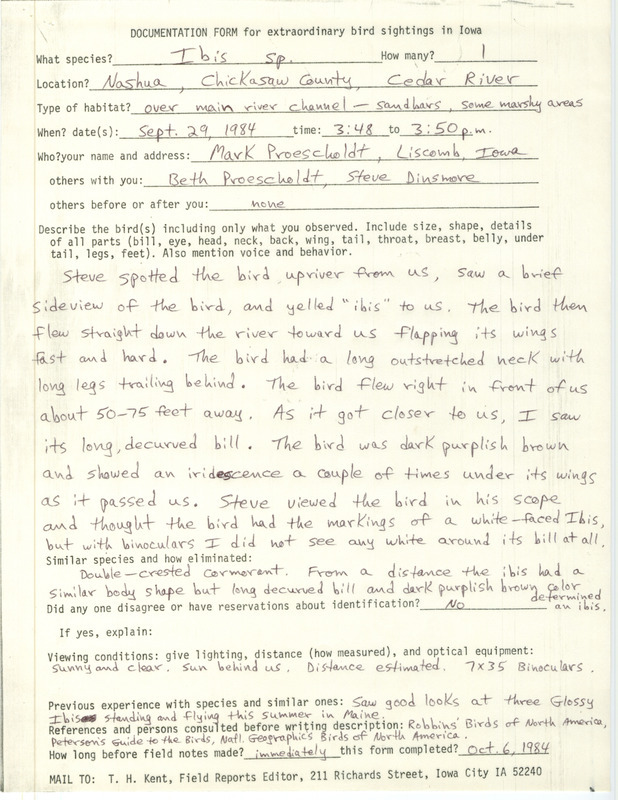 DOCUMENTATION FORM for extraordinary bird sightings in Iowa
What species? Ibis sp. How many? 1
Location? Nashua, Chickasaw County, Cedar River
Type of habitat? over main river channel - sandbars, some marshy areas
When? date(s): Sept. 29, 1984 time: 3:48 to 3:50 p.m.
Who? your name and address: Mark Proescholdt, Liscomb, Iowa
others with you: Beth Proescholdt, Steve Dinsmore
others before or after you: none
Describe the bird(s) including only what you observed. Include size, shape, details
of all parts (bill, eye, head, neck, back, wing, tail, throat, breast, belly, under
tail, legs, feet). Also mention voice and behavior.
Steve spotted the bird upriver from us, saw a brief
sideview of the bird, and yelled "ibis" to us. The bird then
flew straight down the river toward us flapping its wings
fast and hard. The bird had a long outstretched neck with
long legs trailing behind. The bird flew right in front of us
about 50-75 feet away. As it got closer to us, I saw
its long, decurved bill. The bird was dark purplish brown
and showed an iridescence a couple of times under its wings
as it passed us. Steve viewed the bird in his scope
and thought the bird had the markings of a white-faced Ibis,
but with binoculars I did not see any white around its bill at all.
Similar species and how eliminated:
Double-crested Cormorant. From a distance the ibis had a
similar body shape but long decurved bill and dark purplish brown color
determined
Did any one disagree or have reservations about identification? No an ibis.
If yes, explain:
Viewing conditions: give lighting, distance (how measured), and optical equipment:
sunny and clear. sun behind us. Distance estimated. 7x35 Binoculars.
Previous experience with species and similar ones: Saw good looks at three Glossy
Ibis standing and flying this summer in Maine.
References and persons consulted before writing description: Robbins' Birds of North America,
Peterson's Guide to the Birds, Natl. Geographic's Birds of North America.
How long before field notes made? immediately this form completed? Oct. 6, 1984
MAIL TO: T. H. Kent, Field Reports Editor, 211 Richards Street, Iowa City IA 52240